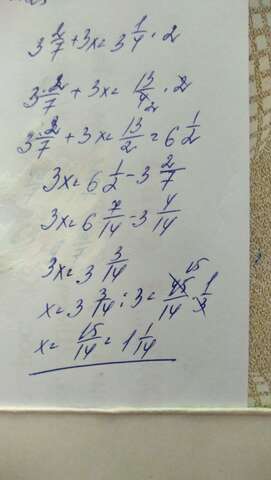 3 2/7 + 3x = 3 1/4 · 2
3 2/7 + 3x = 13/4 2 · 2
3 2/7 + 3x = 13/2 = 6 1/2
3x = 6 1/2 - 3 2/7
3x = 6 7/14 - 3 4/14
3x = 3 3/14
x = 3 3/14 : 3 = 45 15/14 · 1/3
x = 15/14 = 1 1/14